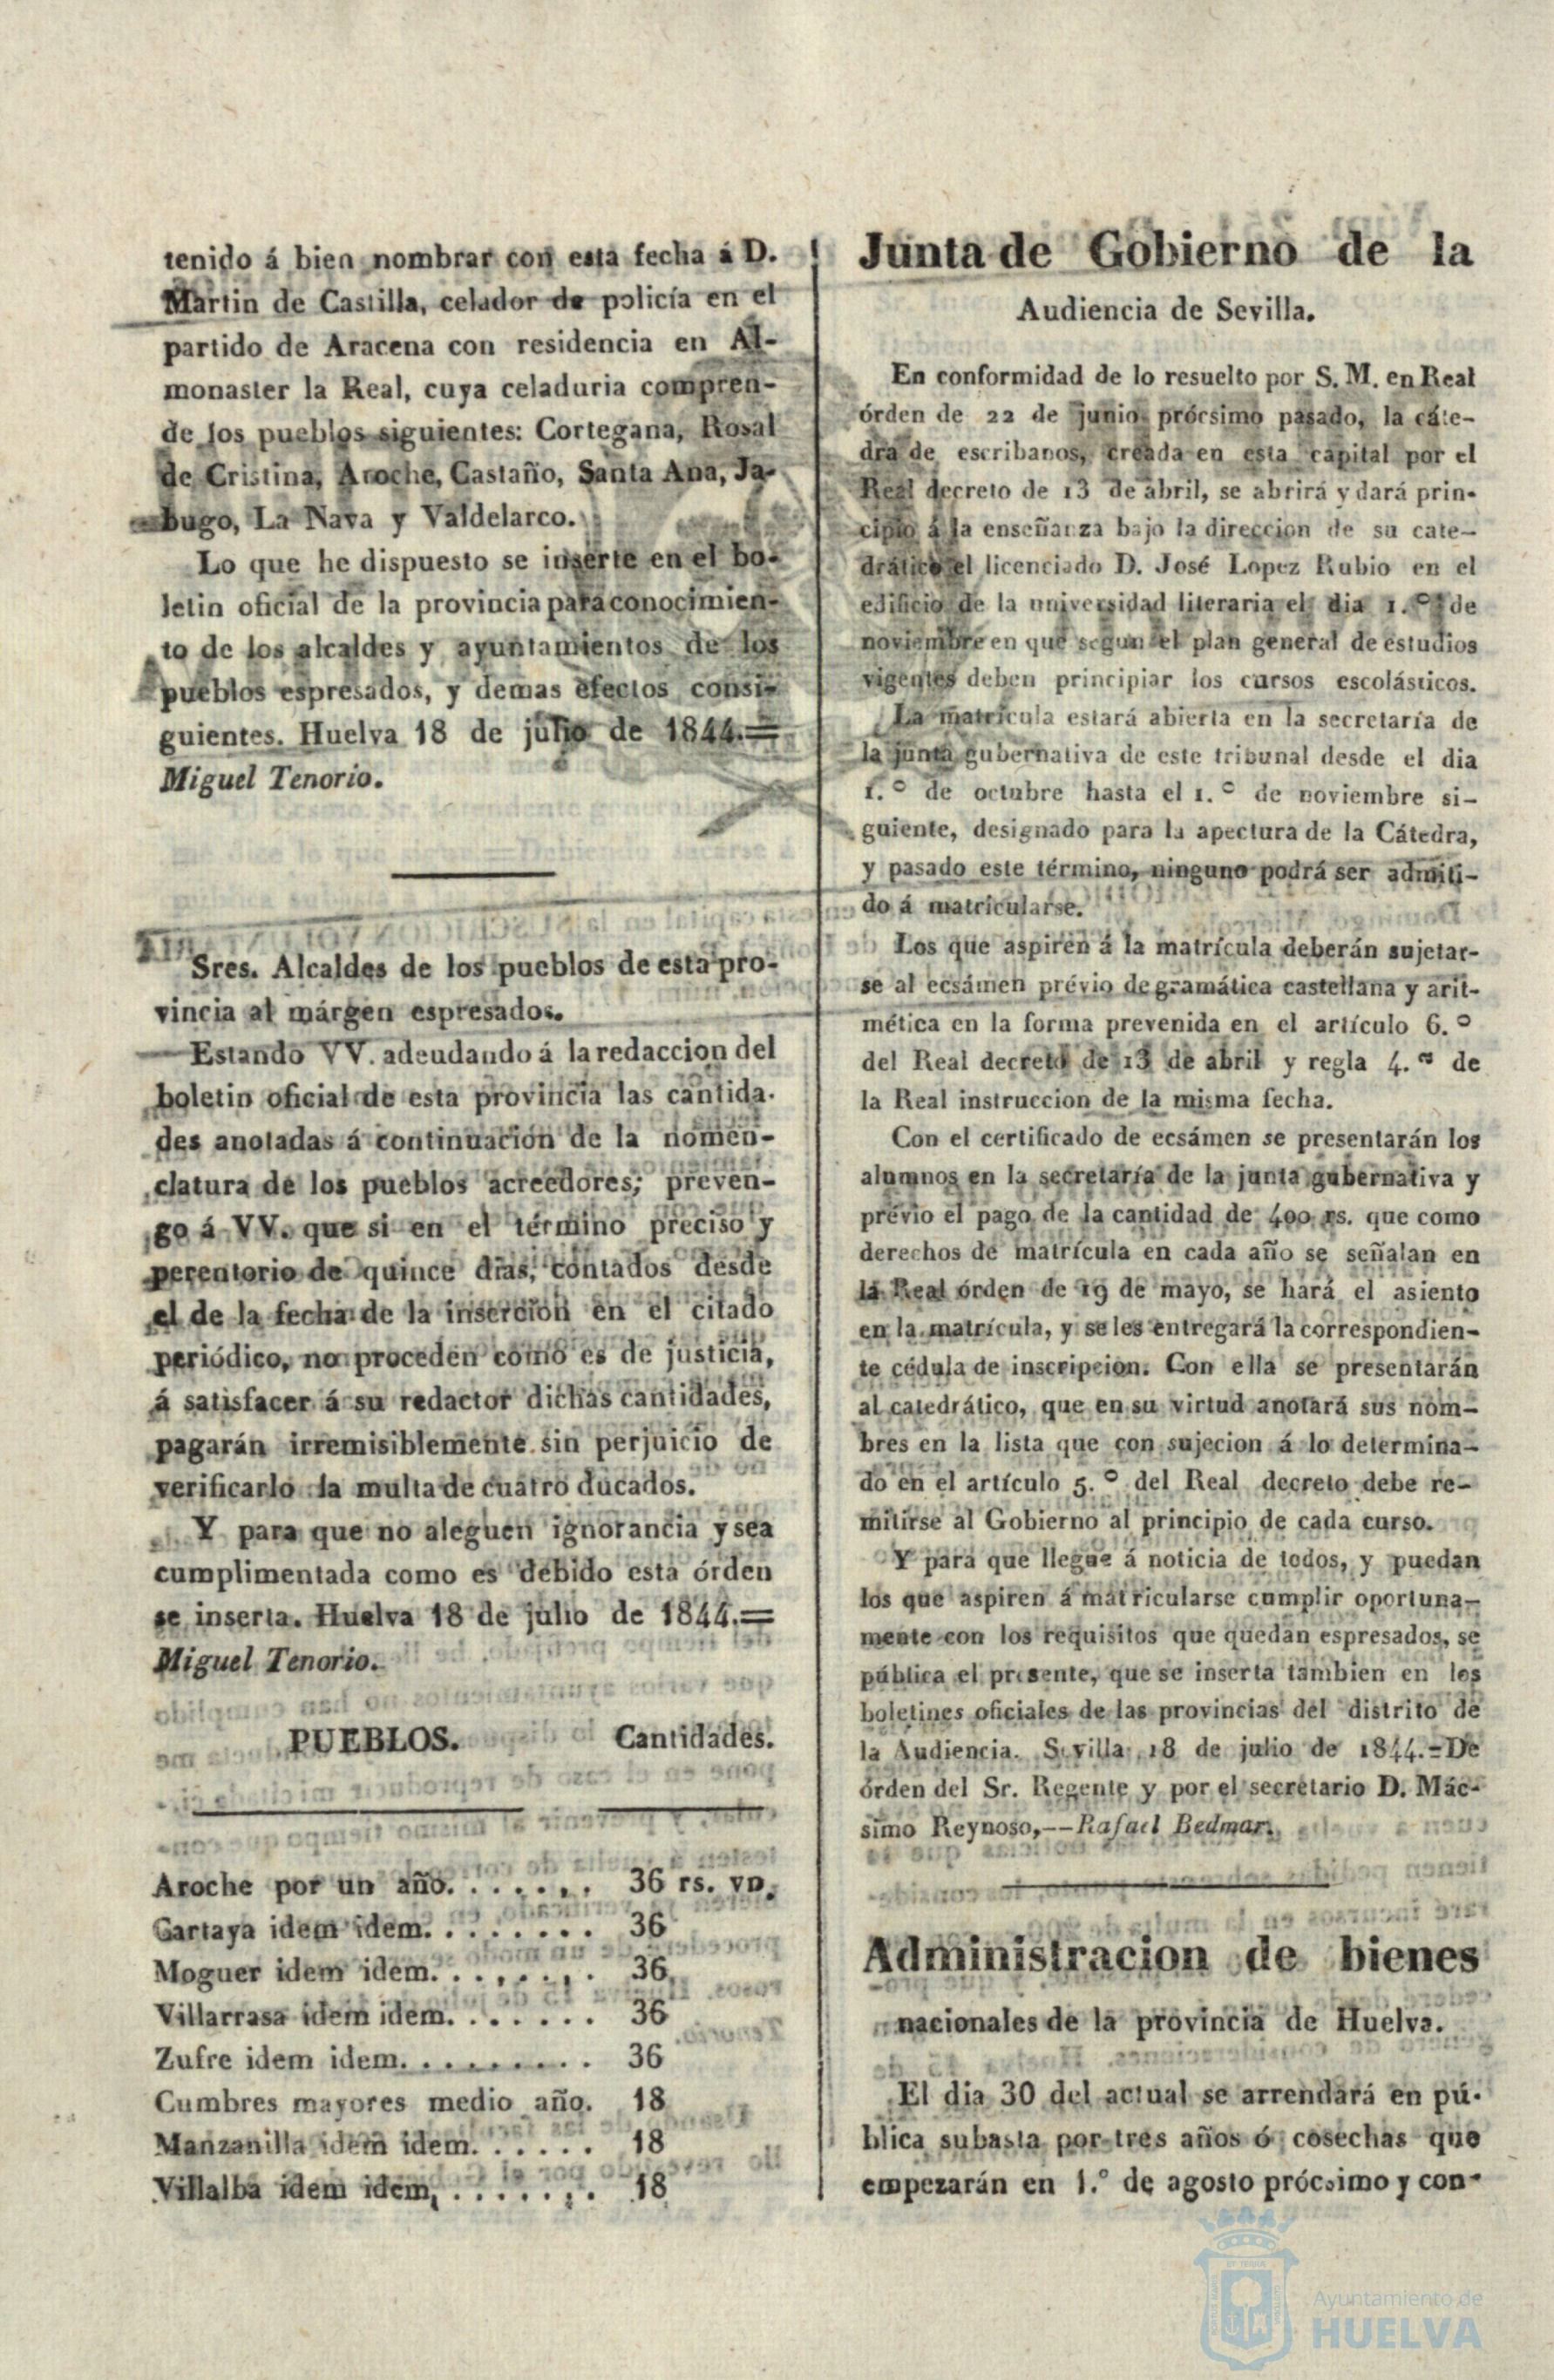 tenido á bien nombrar con esta fecha á D.
Martin de Castilla, celador de policía en el
partido de Aracena con residencia en Al-
monaster la Real, cuya celaduria compren-
de los pueblos siguientes: Cortegana, Rosal
de Cristina, Aroche, Castaño, Santa Ana, Ja-
bugo, La Nava y Valdelarco.
Lo que he dispuesto se inserte en el bo-
letin oficial de la provincia para conocimien-
to de los alcaldes y ayuntamientos de los
pueblos espresados, y demas efectos consi-
guientes. Huelva 18 de julio de 1844.=
Miguel Tenorio.
Sres. Alcaldes de los pueblos de esta pro-
vincia al márgen espresados.
Estando VV. adeudando á la redaccion del
boletin oficial de esta provincia las cantida-
des anotadas á continuación de la nomen-
clatura de los pueblos acreedores; preven-
go á VV. que si en el término preciso y
perentorio de quince dias, contados desde
el de la fecha de la insercion en el citado
periódico, no proceden como es de justicia,
á satisfacer á su redactor dichas cantidades,
pagarán irremisiblemente sin perjuicio de
verificarlo la multa de cuatro ducados.
Y para que no aleguen ignorancia y sea
cumplimentada como es debido esta órden
se inserta. Huelva 18 de julio de 1844.=
Miguel Tenorio.
PUEBLOS. Cantidades.
Aroche por un año. . . . . . . 36 rs. vn.
Cartaya idem idem. . . . . . . . 36
Moguer idem idem. . . . . . . . 36
Villarrasa idem idem. . . . . . . 36
Zufre idem idem. . . . . . . . . 36
Cumbres mayores medio año. 18
Manzanilla idem idem. . . . . . 18
Villalba idem idem, . . . . . . . 18
Junta de Gobierno de la
Audiencia de Sevilla.
En conformidad de lo resuelto por S. M. en Real
órden de 22 de junio prócsimo pasado, la cáte-
dra de escribanos, creada en esta capital por el
Real decreto de 13 de abril, se abrirá y dará prin-
cipio á la enseñanza bajo la direccion de su cate-
drático el licenciado D. José Lopez Rubio en el
edificio de la universidad literaria el dia 1.º de
noviembre en que segun el plan general de estudios
vigentes deben principiar los cursos escolásticos.
La matrícula estará abierta en la secretaría de
la junta gubernativa de este tribunal desde el dia
1.º de octubre hasta el 1.º de noviembre si-
guiente, designado para la apectura de la Cátedra,
y pasado este término, ninguno podrá ser admiti-
do á matricularse.
Los que aspiren á la matrícula deberán sujetar-
se al ecsámen prévio de gramática castellana y arit-
mética en la forma prevenida en el artículo 6.º
del Real decreto de 13 de abril y regla 4.ª de
la Real instruccion de la misma fecha.
Con el certificado de ecsámen se presentarán los
alumnos en la secretaría de la junta gubernativa y
prévio el pago de la cantidad de 400 rs. que como
derechos de matrícula en cada año se señalan en
la Real órden de 19 de mayo, se hará el asiento
en la matrícula, y se les entregará la correspondien-
te cédula de inscripcion. Con ella se presentarán
al catedrático, que en su virtud anotará sus nom-
bres en la lista que con sujecion á lo determina-
do en el artículo 5.º del Real decreto debe re-
mitirse al Gobierno al principio de cada curso.
Y para que llegue á noticia de todos, y puedan
los que aspiren á matricularse cumplir oportuna-
mente con los requisitos que quedan espresados, se
pública el presente, que se inserta tambien en los
boletines oficiales de las provincias del distrito de
la Audiencia. Sevilla 18 de julio de 1844.=De
órden del Sr. Regente y por el secretario D. Mác-
simo Reynoso,--Rafael Bedmar.
Administracion de bienes
nacionales de la provincia de Huelva.
El dia 30 del actual se arrendará en pú-
blica subasta por tres años ó cosechas que
empezarán en 1.º de agosto prócsimo y con-
Ayuntamiento de
HUELVA